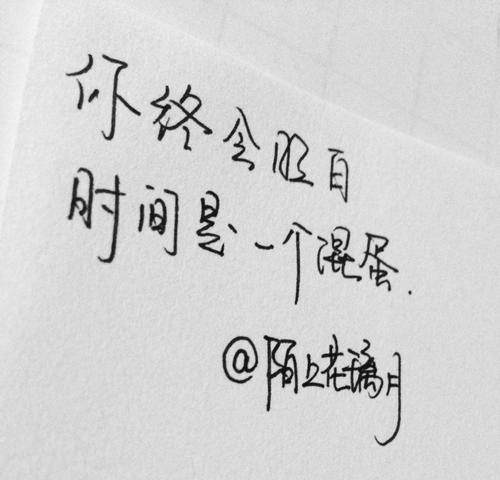 你终会明白
时间是一个混蛋.
@陌上花璃月